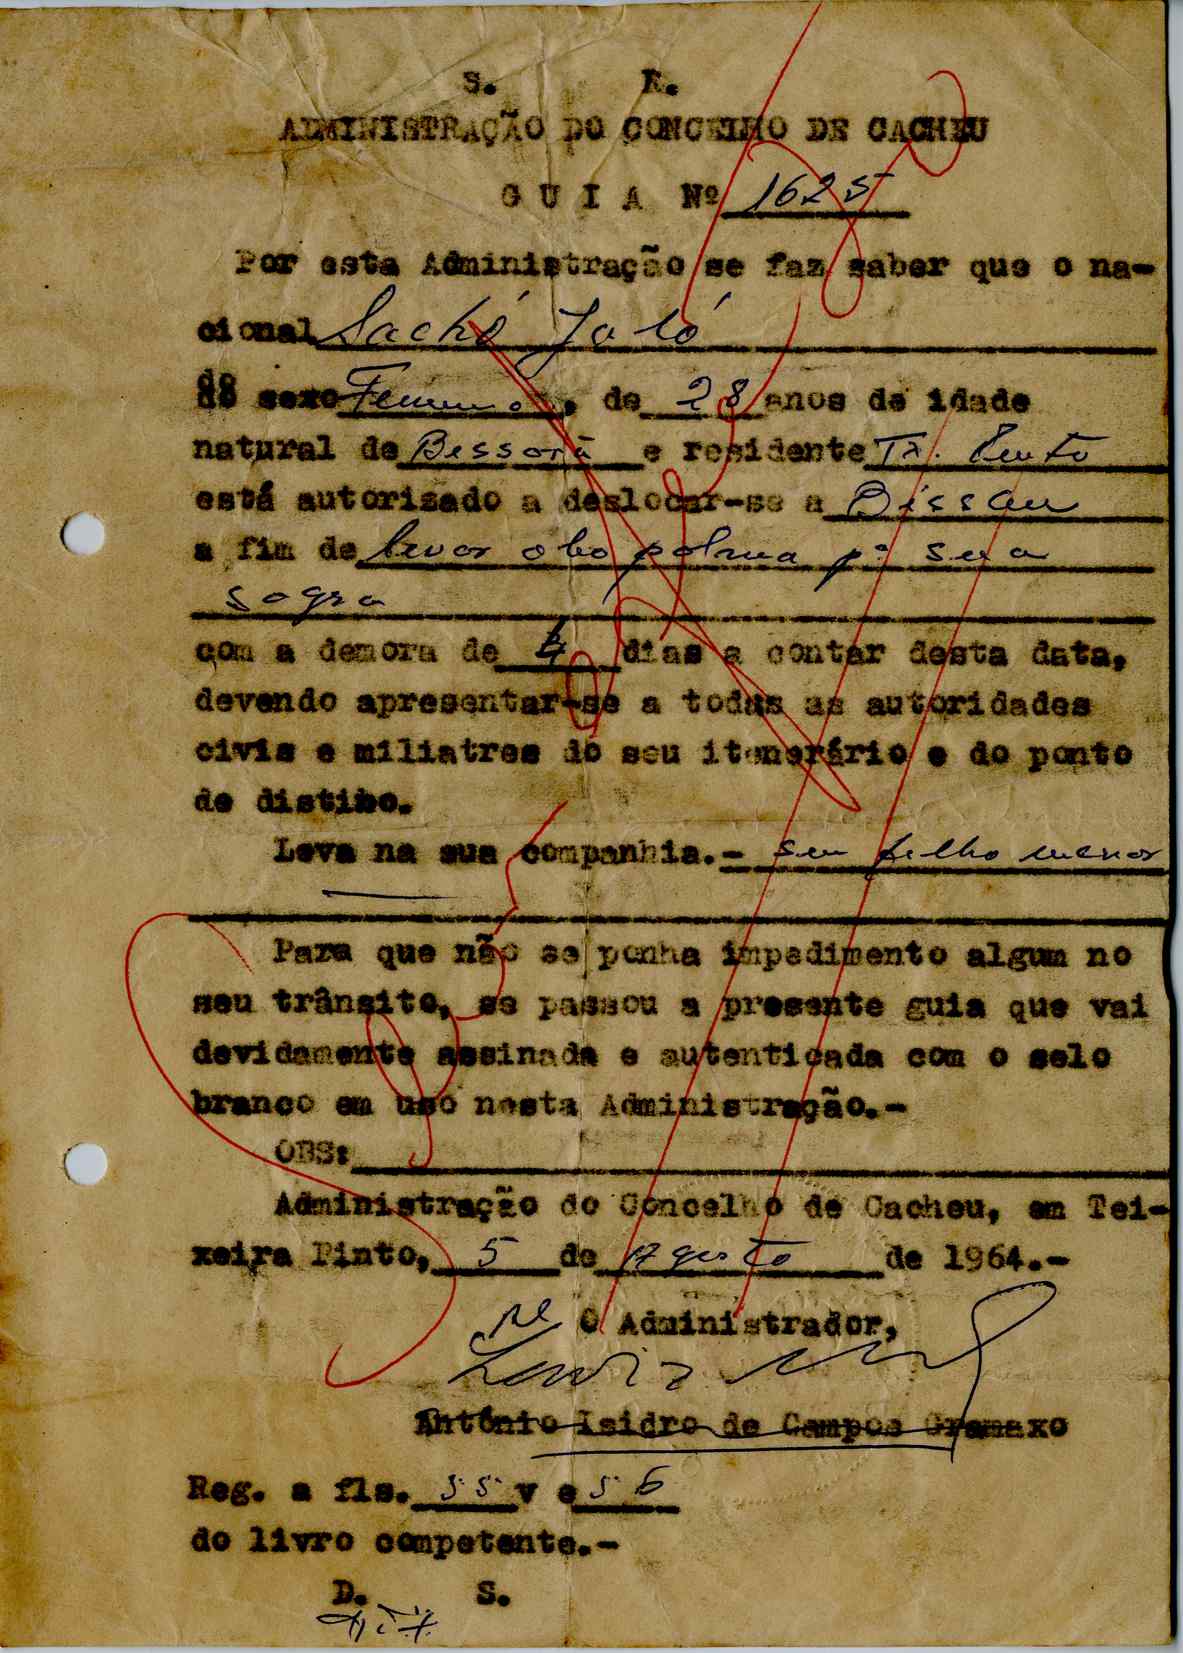 S. R.
ADMINISTRAÇÃO DO CONCELHO DE CACHEU
G U I A Nº 1625
Por esta Administração se faz saber que o na-
cional Sachó Jaló
do
do sexo Femenino, de 28 anos de idade
natural de Bessorã e residente Tx. Pinto
está autorizado a deslocar-se a Bissau
a fim de levar oleo palma pª sua
sogra
com a demora de 4 dias a contar desta data,
devendo apresentar-se a todas as autoridades
civis e miliatres do seu itenerário e do ponto
de distino.
Leva na sua companhia.- seu filho menor
Para que não se ponha impedimento algum no
seu trânsito, se passou a presente guia que vai
devidamente assinada e autenticada com o selo
branco em uso nesta Administração.-
OBS:
Administração do Concelho de Cacheu, em Tei-
xeira Pinto, 5 de Agosto de 1964.-
O Administrador,
António Isidro de Campos Gramaxo
Reg. a fls. 55 v e 56
do livro competente.-
D. S.